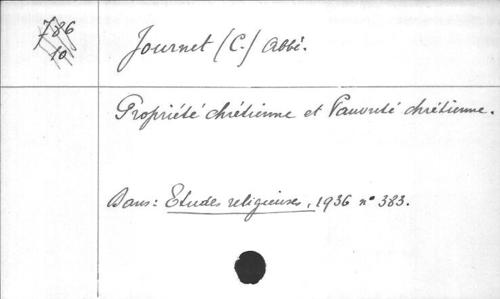 786
10
Journet (C.) Abbé.
Propriété chrétienne et Pauvreté chrétienne.
Dans: Etudes religieuses, 1936 n° 383.